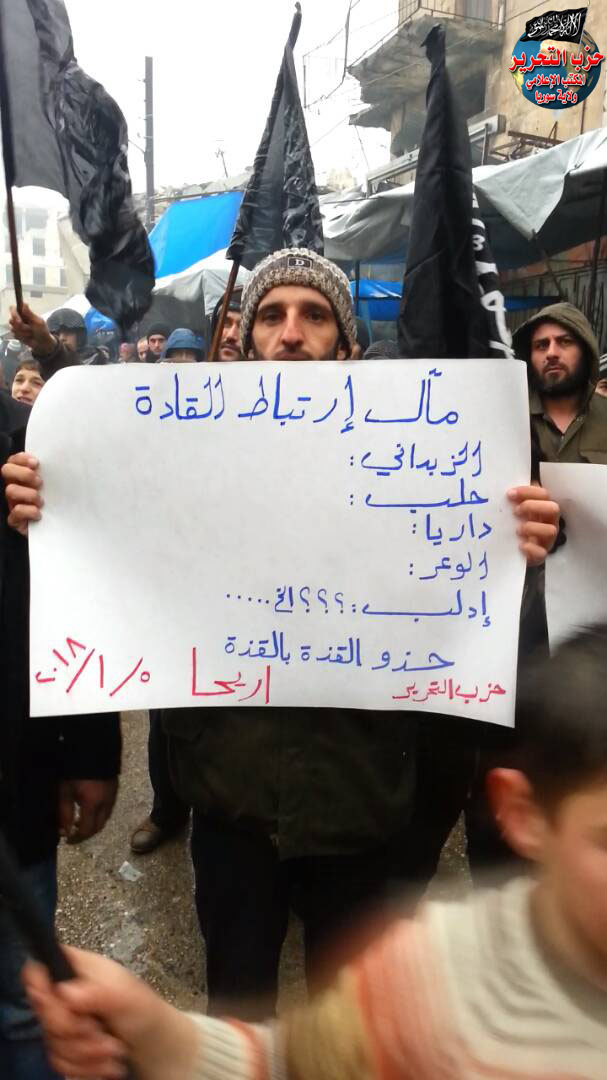 حزب التحرير
المكتب الإعلامي
ولاية سوريا
مآل إرتباط القادة
الزبداني:
حلب:
داريا:
الوعر:
إدلب:؟؟؟ الخ.....
حذو القذة بالقذة
حزب التحرير اريحا ٥/١/١٨